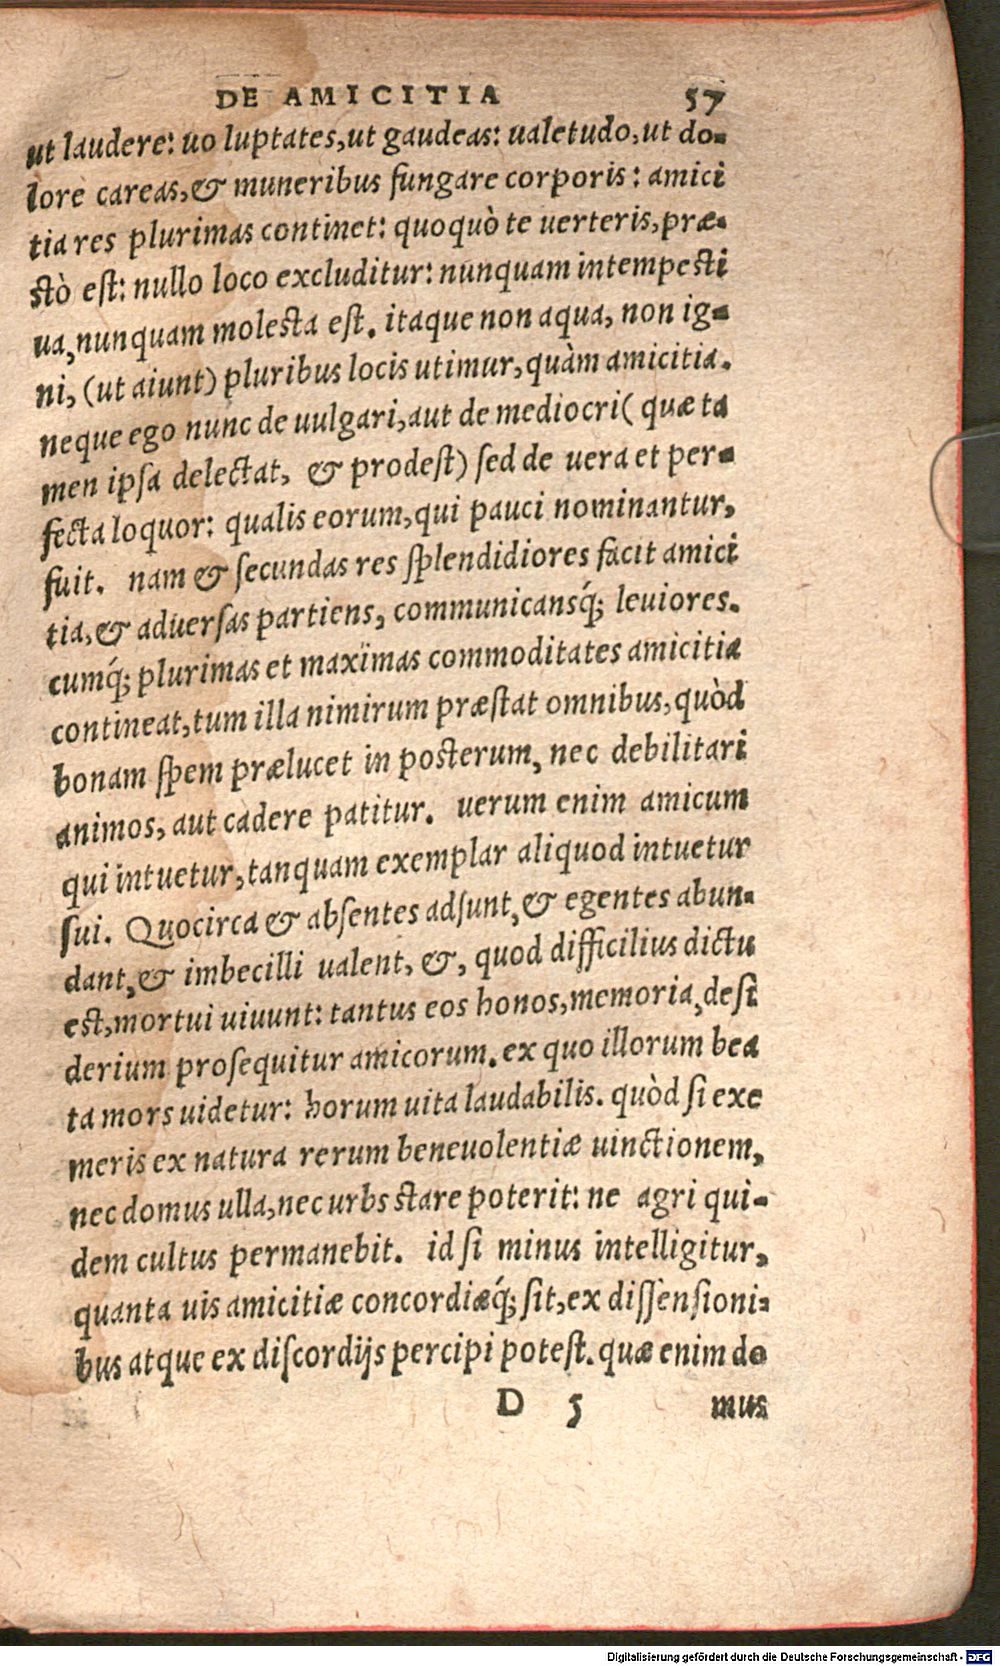 DE AMICITIA 57
ut laudere: uo luptates, ut gaudeas: ualetudo, ut do-
lore careas, & muneribus fungare corporis: amici
tia res plurimas continet: quoquò te uerteris, præ-
stò est: nullo loco excluditur: nunquam intempesti
ua, nunquam molesta est. itaque non aqua, non ig-
ni, (ut aiunt) pluribus locis utimur, quàm amicitia.
neque ego nunc de uulgari, aut de mediocri (quæ ta
men ipsa delectat, & prodest) sed de uera et per-
fecta loquor: qualis eorum, qui pauci nominantur,
fuit. nam & secundas res splendidiores facit amici
tia, & aduersas partiens, communicansq́; leuiores.
cumq́; plurimas et maximas commoditates amicitia
contineat, tum illa nimirum præstat omnibus, quòd
bonam spem prælucet in posterum, nec debilitari
animos, aut cadere patitur. uerum enim amicum
qui intuetur, tanquam exemplar aliquod intuetur
sui. Quocirca & absentes adsunt, & egentes abun-
dant, & imbecilli ualent, &, quod difficilius dictu
est, mortui uiuunt: tantus eos honos, memoria, desi
derium prosequitur amicorum. ex quo illorum bea
ta mors uidetur: horum uita laudabilis. quòd si exe
meris ex natura rerum beneuolentiæ uinctionem,
nec domus ulla, nec urbs stare poterit: ne agri qui-
dem cultus permanebit. id si minus intelligitur,
quanta uis amicitiæ concordiæq́; sit, ex dissensioni-
bus atque ex discordijs percipi potest. quæ enim do
D 5 mus
Digitalisierung gefördert durch die Deutsche Forschungsgemeinschaft - DFG